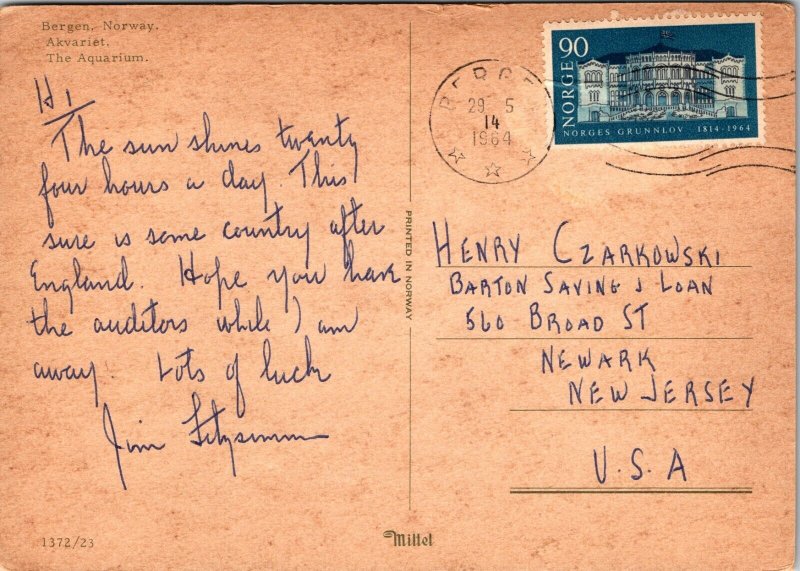 Bergen, Norway.
Akvariet.
The Aquarium.
Hi
The sun shines twenty
four hours a day. This
sure is some country after
England. Hope you have
the auditors while I am
away. Lots of luck
Jim Fitzsimm
PRINTED IN NORWAY
1372/23
Mittet
BERGE
29. 5
14
1964
90
NORGE
NORGES GRUNNLOV 1814-1964
HENRY CZARKOWSKI
BARTON SAVING & LOAN
560 BROAD ST
NEWARK
NEW JERSEY
U.S.A